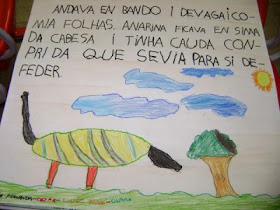 ANDAVA EN BANDO I DEVAGAICO-
MIA FOLHAS. ANARINA FICAVA EN SIMA
DA CABESA I TINHA CAUDA CON-
PRIDA QUE SEVIA PARA SI DE-
FEDER